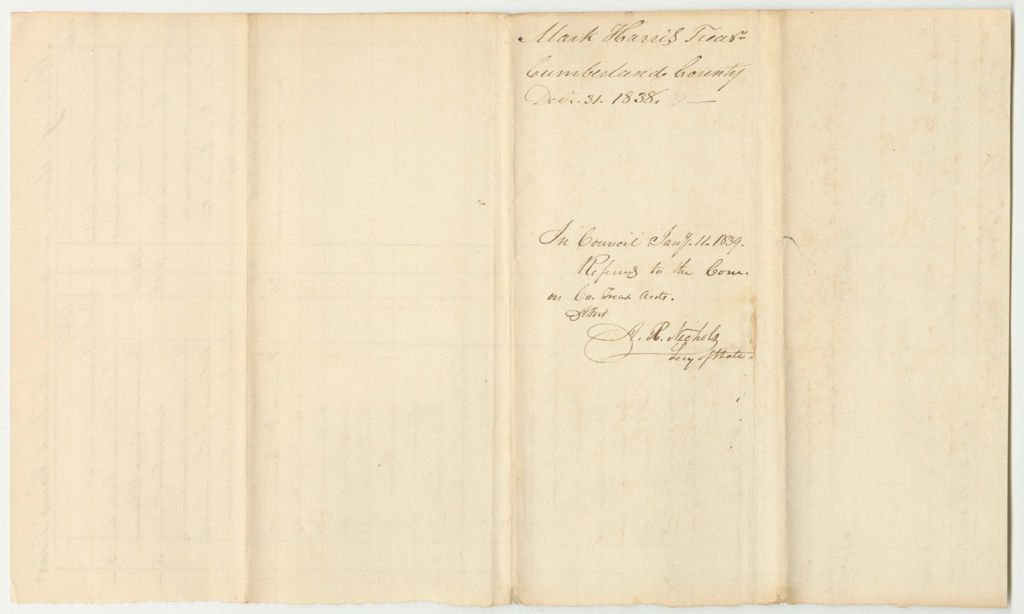 Mark Harris Treasr
Cumberland County
Decr. 31. 1838.
In Council Jany. 11. 1839.
Referred to the Com.
on Co. Treas. Accts.
Attest
A. R. Nichols
Secy of State.